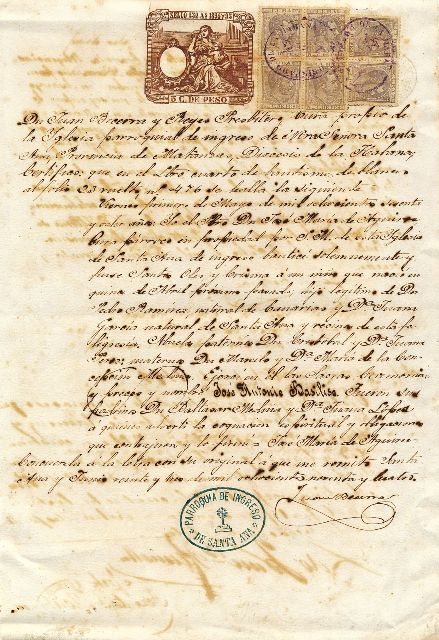 SELLO 12º AÑOS 1894 Y 95
5 C. DE PESO
Dn Juan Becerra y Reyes Presbítero Cura propio de
la Iglesia parroquial de ingreso de Ntra Señora Santa
Ana, Provincia de Matanzas, Diócesis de la Habana
Certifico: que en el Libro cuarto de bautismo de blancos
al folio 23 vuelto nº 476 se halla la siguiente
Viernes primero de Mayo de mil ochocientos sesenta
y cuatro años. Yo el Pbro Dn José María de Aguirre
Cura párroco en propiedad por S. M. de esta Iglesia
de Santa Ana de ingreso bauticé solemnemente y
puse Santo Oleo y Crisma a un niño que nació en
quince de Abril próximo pasado, hijo legítimo de Dn
Pedro Ramirez natural de Canarias y Da Juana
García natural de Santa Ana y vecinos de esta fe
ligresía, Abuelos paternos Dn Cristobal y Da Juana
Perez, maternos Dn Manuel y Da María de la Con
cepción Medina. Ejercí en él las Sacras Ceremonias
y preces y nombré José Antonio Basilio. Fueron sus
padrinos Dn Baltasar Medina y Da Juana López
a quienes advertí la cognación espiritual y obligaciones
que contrajeron y lo firmé = José María de Aguirre
Concuerda a la letra con su original a que me remito. Santa
Ana y Junio veinte y tres de mil ochocientos noventa y cuatro
Juan Becerra
PARROQUIA DE INGRESO
DE SANTA ANA